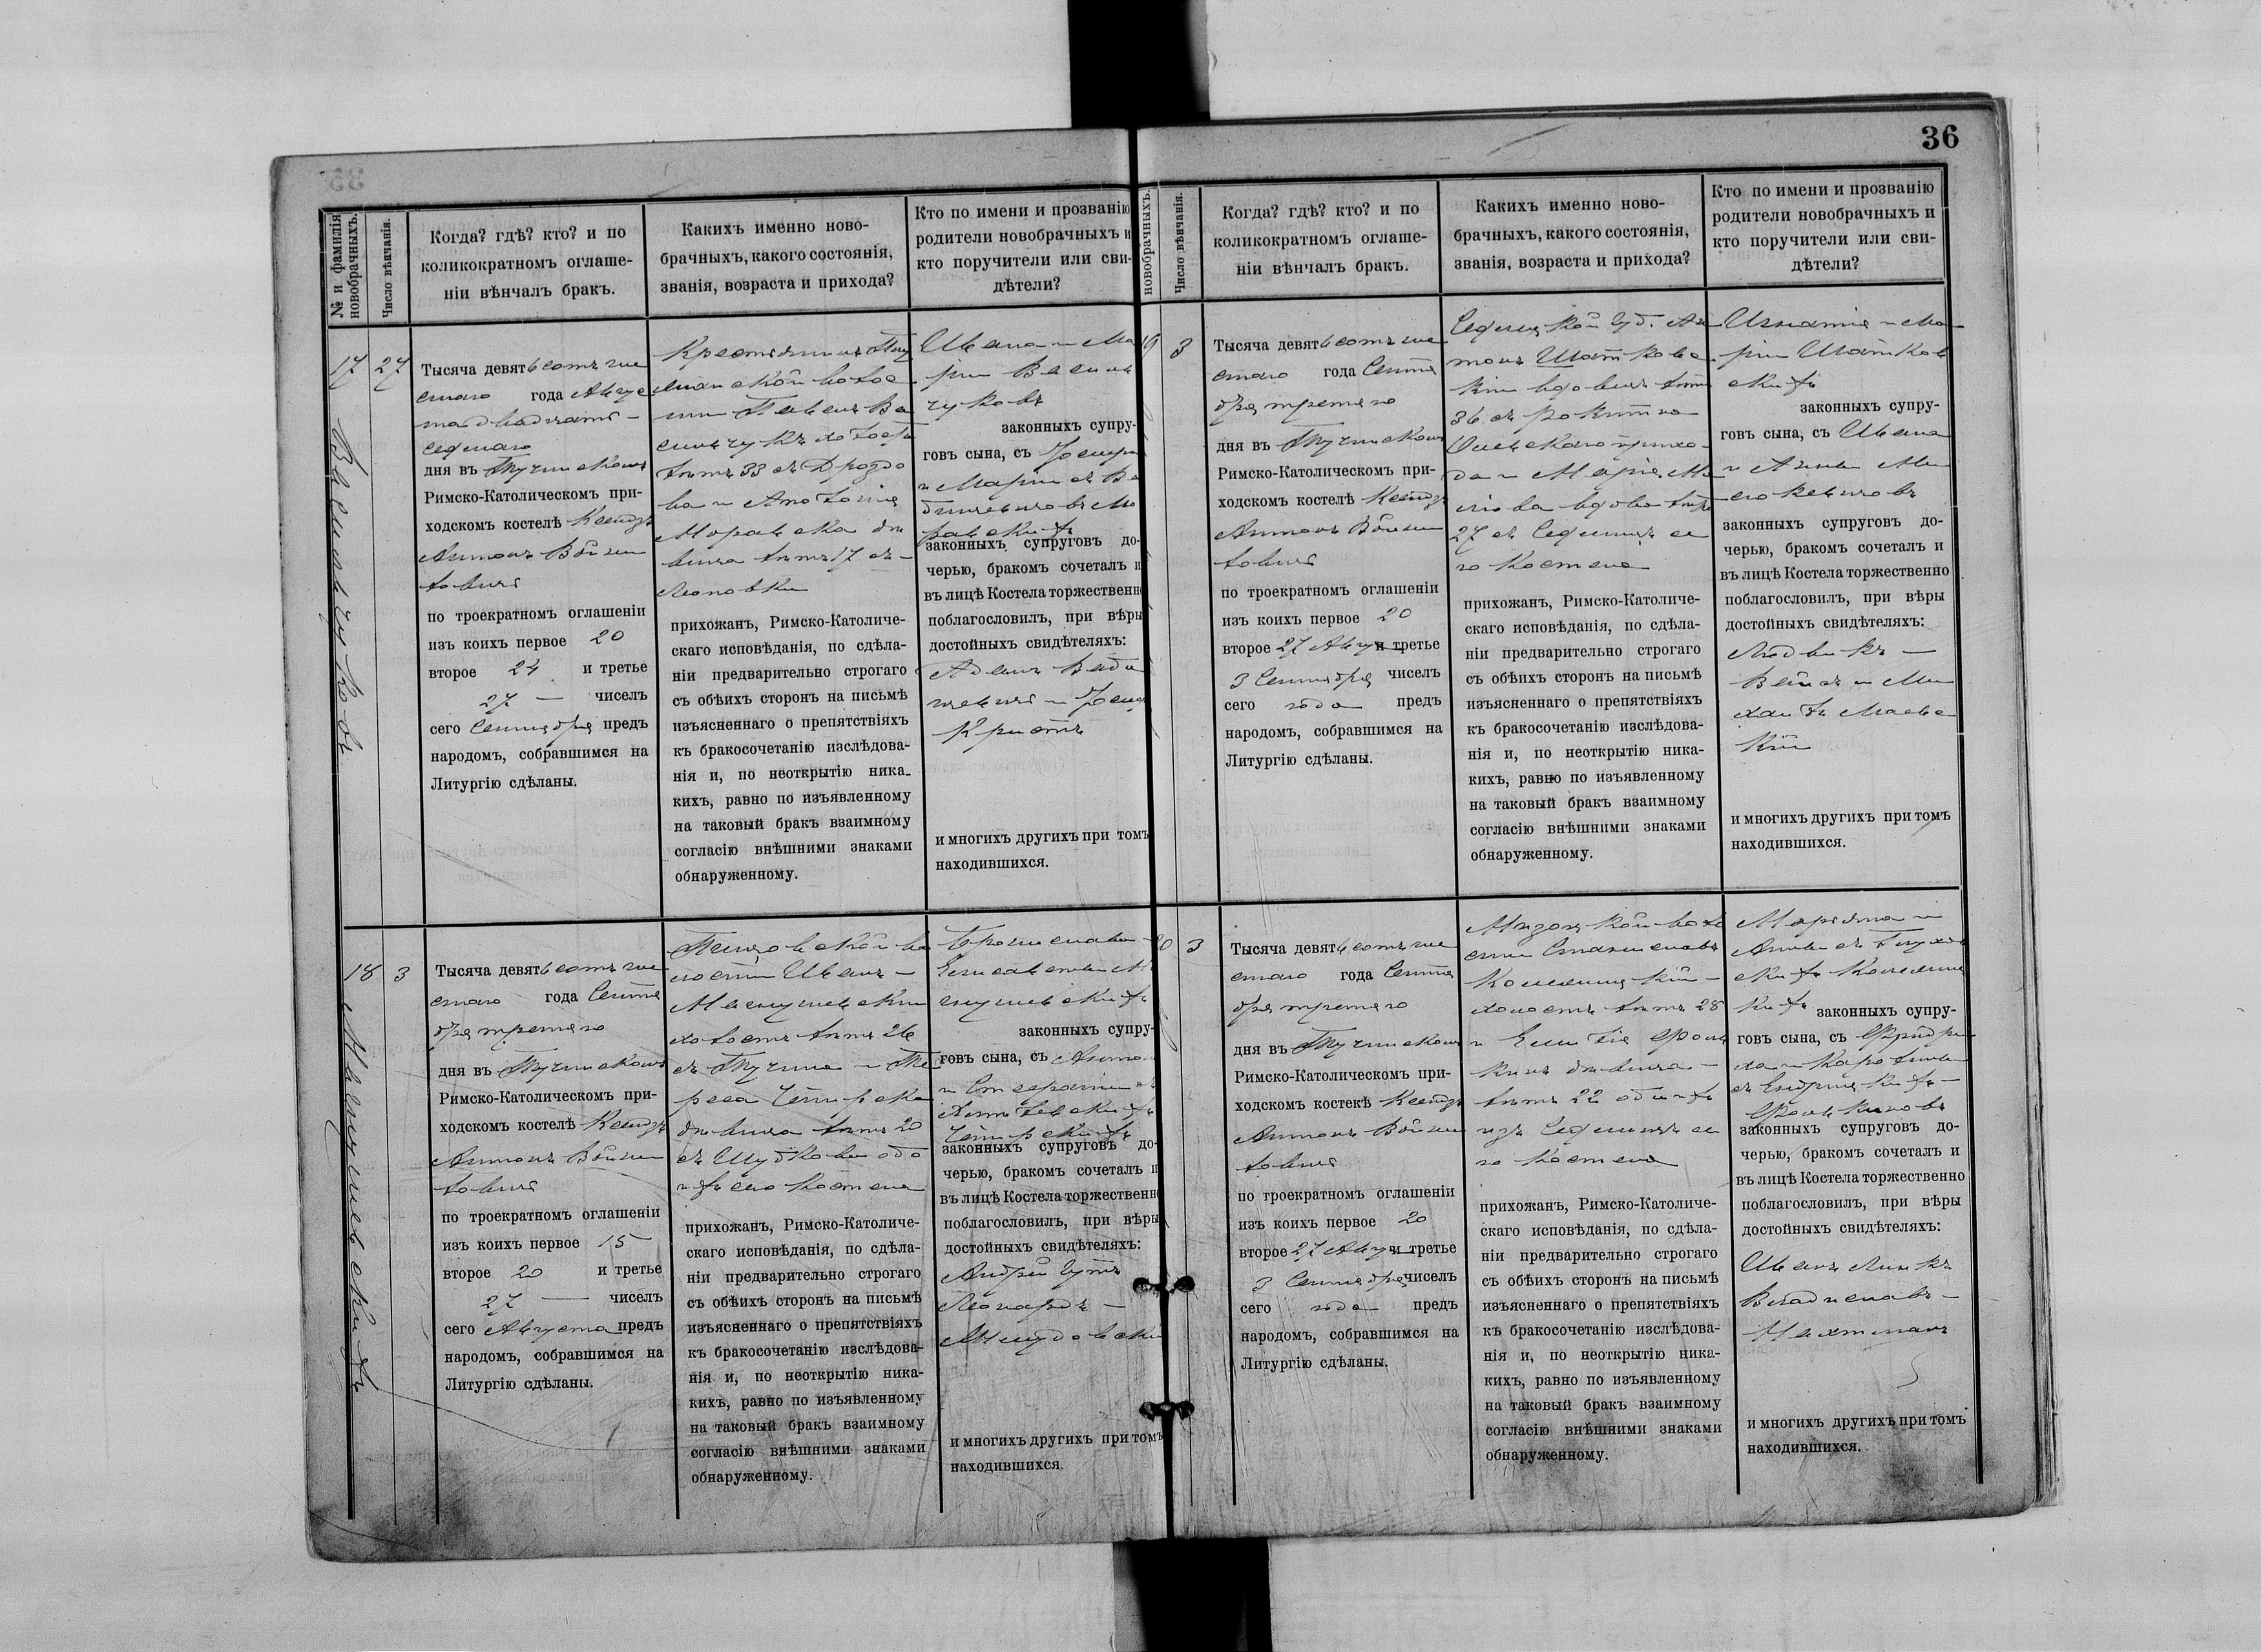 36
№ и фамилія
новобрачныхъ.
Число вѣнчанія.
Когда? гдѣ? кто? и по
коликократномъ оглаше-
ніи вѣнчалъ бракъ.
Какихъ именно ново-
брачныхъ, какого состоянія,
званія, возраста и прихода?
Кто по имени и прозванію
родители новобрачныхъ и
кто поручители или сви-
дѣтели?
17
Васильчуковъ
27
Тысяча девятьсотъ ше
стаго года Авгус
та двадцать
седьмаго
дня въ Тучинскомъ
Римско-Католическомъ при-
ходскомъ костелѣ Ксендзъ
Антонъ
по троекратномъ оглашеніи
изъ коихъ первое 20
второе 24 и третье
27 — чиселъ
сего Сентября предъ
народомъ, собравшимся на
Литургію сдѣланы.
Крестьянинъ
волос
ти Павелъ Ва
сильчукъ холостъ
лѣтъ 33 съ Дроздо
ва и Антонина
Моравска дѣ
вица лѣтъ 17 съ —
Леоновки
прихожанъ, Римско-Католиче-
скаго исповѣданія, по сдѣла-
ніи предварительно строгаго
съ обѣихъ сторонъ на письмѣ
изъясненнаго о препятствіяхъ
къ бракосочетанію изслѣдова-
нія и, по неоткрытію ника-
кихъ, равно по изъявленному
на таковый бракъ взаимному
согласію внѣшними знаками
обнаруженному.
Ивана и Ма
ріи Василь
чуковъ
законныхъ супру-
говъ сына, съ
и Маріи съ
Мо
равскихъ
законныхъ супруговъ до-
черью, бракомъ сочеталъ и
въ лицѣ Костела торжественно
поблагословилъ, при вѣры
достойныхъ свидѣтеляхъ:
Адамъ
и
и многихъ другихъ при томъ
находившихся.
18
Маснушевскихъ
3
Тысяча девятьсотъ ше
стаго года Сентя
бря третяго
дня въ Тучинскомъ
Римско-Католическомъ при-
ходскомъ костелѣ Ксендзъ
Антонъ
по троекратномъ оглашеніи
изъ коихъ первое 15
второе 20 и третье
27 — чиселъ
сего Августа предъ
народомъ, собравшимся на
Литургію сдѣланы.
во
лости Иванъ —
Маснушевскій
холостъ лѣтъ 26
съ Тучина и Те
реса
дѣвица лѣтъ 20
съ Шубкова обо
ихъ сего костела
прихожанъ, Римско-Католиче-
скаго исповѣданія, по сдѣла-
ніи предварительно строгаго
съ обѣихъ сторонъ на письмѣ
изъясненнаго о препятствіяхъ
къ бракосочетанію изслѣдова-
нія и, по неоткрытію ника-
кихъ, равно по изъявленному
на таковый бракъ взаимному
согласію внѣшними знаками
обнаруженному.
Бронислава
Елисаветы Ма
снушевскихъ
законныхъ супру-
говъ сына, съ Антона
и
законныхъ супруговъ до-
черью, бракомъ сочеталъ и
въ лицѣ Костела торжественно
поблагословилъ, при вѣры
достойныхъ свидѣтеляхъ:
Андрей
Леонардъ —
и многихъ другихъ при томъ
находившихся.
новобрачныхъ.
Число вѣнчанія.
Когда? гдѣ? кто? и по
коликократномъ оглаше-
ніи вѣнчалъ бракъ.
Какихъ именно ново-
брачныхъ, какого состоянія,
званія, возраста и прихода?
Кто по имени и прозванію
родители новобрачныхъ и
кто поручители или сви-
дѣтели?
19
3
Тысяча девятьсотъ ше
стаго года Сентя
бря третяго
дня въ Тучинскомъ
Римско-Католическомъ при-
ходскомъ костелѣ Ксендзъ
Антонъ
по троекратномъ оглашеніи
изъ коихъ первое 20
второе 27 Августа и третье
3 Сентября чиселъ
сего года предъ
народомъ, собравшимся на
Литургію сдѣланы.
Седлецкой губ. Ан
тонъ Шатковс
кій вдовецъ лѣтъ
36 съ Рокитно
Олевскаго прихо-
да и Марія
вдова лѣтъ
27 съ Селищъ се
го Костела
прихожанъ, Римско-Католиче-
скаго исповѣданія, по сдѣла-
ніи предварительно строгаго
съ обѣихъ сторонъ на письмѣ
изъясненнаго о препятствіяхъ
къ бракосочетанію изслѣдова-
нія и, по неоткрытію ника-
кихъ, равно по изъявленному
на таковый бракъ взаимному
согласію внѣшними знаками
обнаруженному.
Игнатія и Ма
ріи Шатков
скихъ
законныхъ супру-
говъ сына, съ Ивана
и Анны
законныхъ супруговъ до-
черью, бракомъ сочеталъ и
въ лицѣ Костела торжественно
поблагословилъ, при вѣры
достойныхъ свидѣтеляхъ:
Людвикъ —
и Ми
хаилъ
и многихъ другихъ при томъ
находившихся.
20
3
Тысяча девятьсотъ ше
стаго года Сентя
бря третяго
дня въ Тучинскомъ
Римско-Католическомъ при-
ходскомъ костекѣ Ксендзъ
Антонъ
по троекратномъ оглашеніи
изъ коихъ первое 20
второе 27 Августа и третье
3 Сентября чиселъ
сего года предъ
народомъ, собравшимся на
Литургію сдѣланы.
Мизоцкой воло
сти Станиславъ
холостъ лѣтъ 28
и
дѣвица —
лѣтъ 22 обоихъ
изъ Селищъ се
го костела
прихожанъ, Римско-Католиче-
скаго исповѣданія, по сдѣла-
ніи предварительно строгаго
съ обѣихъ сторонъ на письмѣ
изъясненнаго о препятствіяхъ
къ бракосочетанію изслѣдова-
нія и, по неоткрытію ника-
кихъ, равно по изъявленному
на таковый бракъ взаимному
согласію внѣшними знаками
обнаруженному.
Марьяна и
Анны съ
законныхъ супру-
говъ сына, съ Фридри
ха и Каролины
законныхъ супруговъ до-
черью, бракомъ сочеталъ и
въ лицѣ Костела торжественно
поблагословилъ, при вѣры
достойныхъ свидѣтеляхъ:
Иванъ Линкъ
Владиславъ —
и многихъ другихъ при томъ
находившихся.